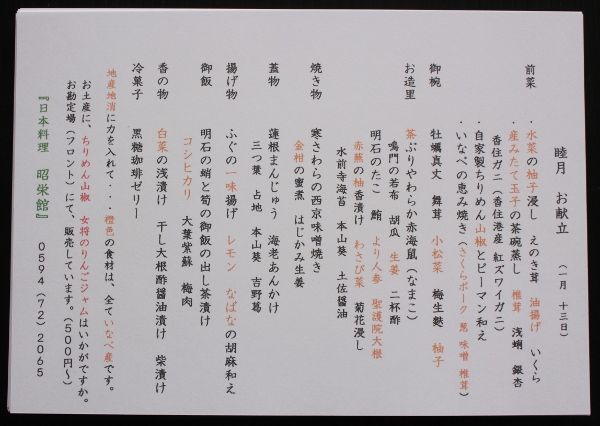 睦月　お献立　（一月　十三日）
前菜　・水菜の柚子浸し　えのき茸　油揚げ　いくら
・産みたて玉子の茶碗蒸し　椎茸　浅蜊　銀杏
香住ガニ（香住港産　紅ズワイガニ）
・自家製ちりめん山椒とピーマン和え
・いなべの恵み焼き（さくらポーク　葱　味噌　椎茸）
御椀　牡蠣真丈　舞茸　小松菜　梅生麩　柚子
お造里　茶ぶりやわらか赤海鼠（なまこ）
鳴門の若布　胡瓜　生姜　二杯酢
明石のたこ　鮪　より人参　聖護院大根
赤蕪の柚香漬け　わさび菜　菊花浸し
水前寺海苔　本山葵　土佐醤油
焼き物　寒さわらの西京味噌焼き
金柑の蜜煮　はじかみ生姜
蓋物　蓮根まんじゅう　海老あんかけ
三つ葉　占地　本山葵　吉野葛
揚げ物　ふぐの一味揚げ　レモン　なばなの胡麻和え
御飯　明石の蛸と筍の御飯の出し茶漬け
コシヒカリ　大葉紫蘇　梅肉
香の物　白菜の浅漬け　干し大根醤油漬け　柴漬け
冷菓子　黒糖珈琲ゼリー
地産地消に力を入れて・・・橙色の食材は、全ていなべ産です。
お土産に、ちりめん山椒　女将のりんごジャムはいかがですか。
お勘定場（フロント）にて、販売しています。（５００円～）
『日本料理　昭栄館』　０５９４（７２）２０６５